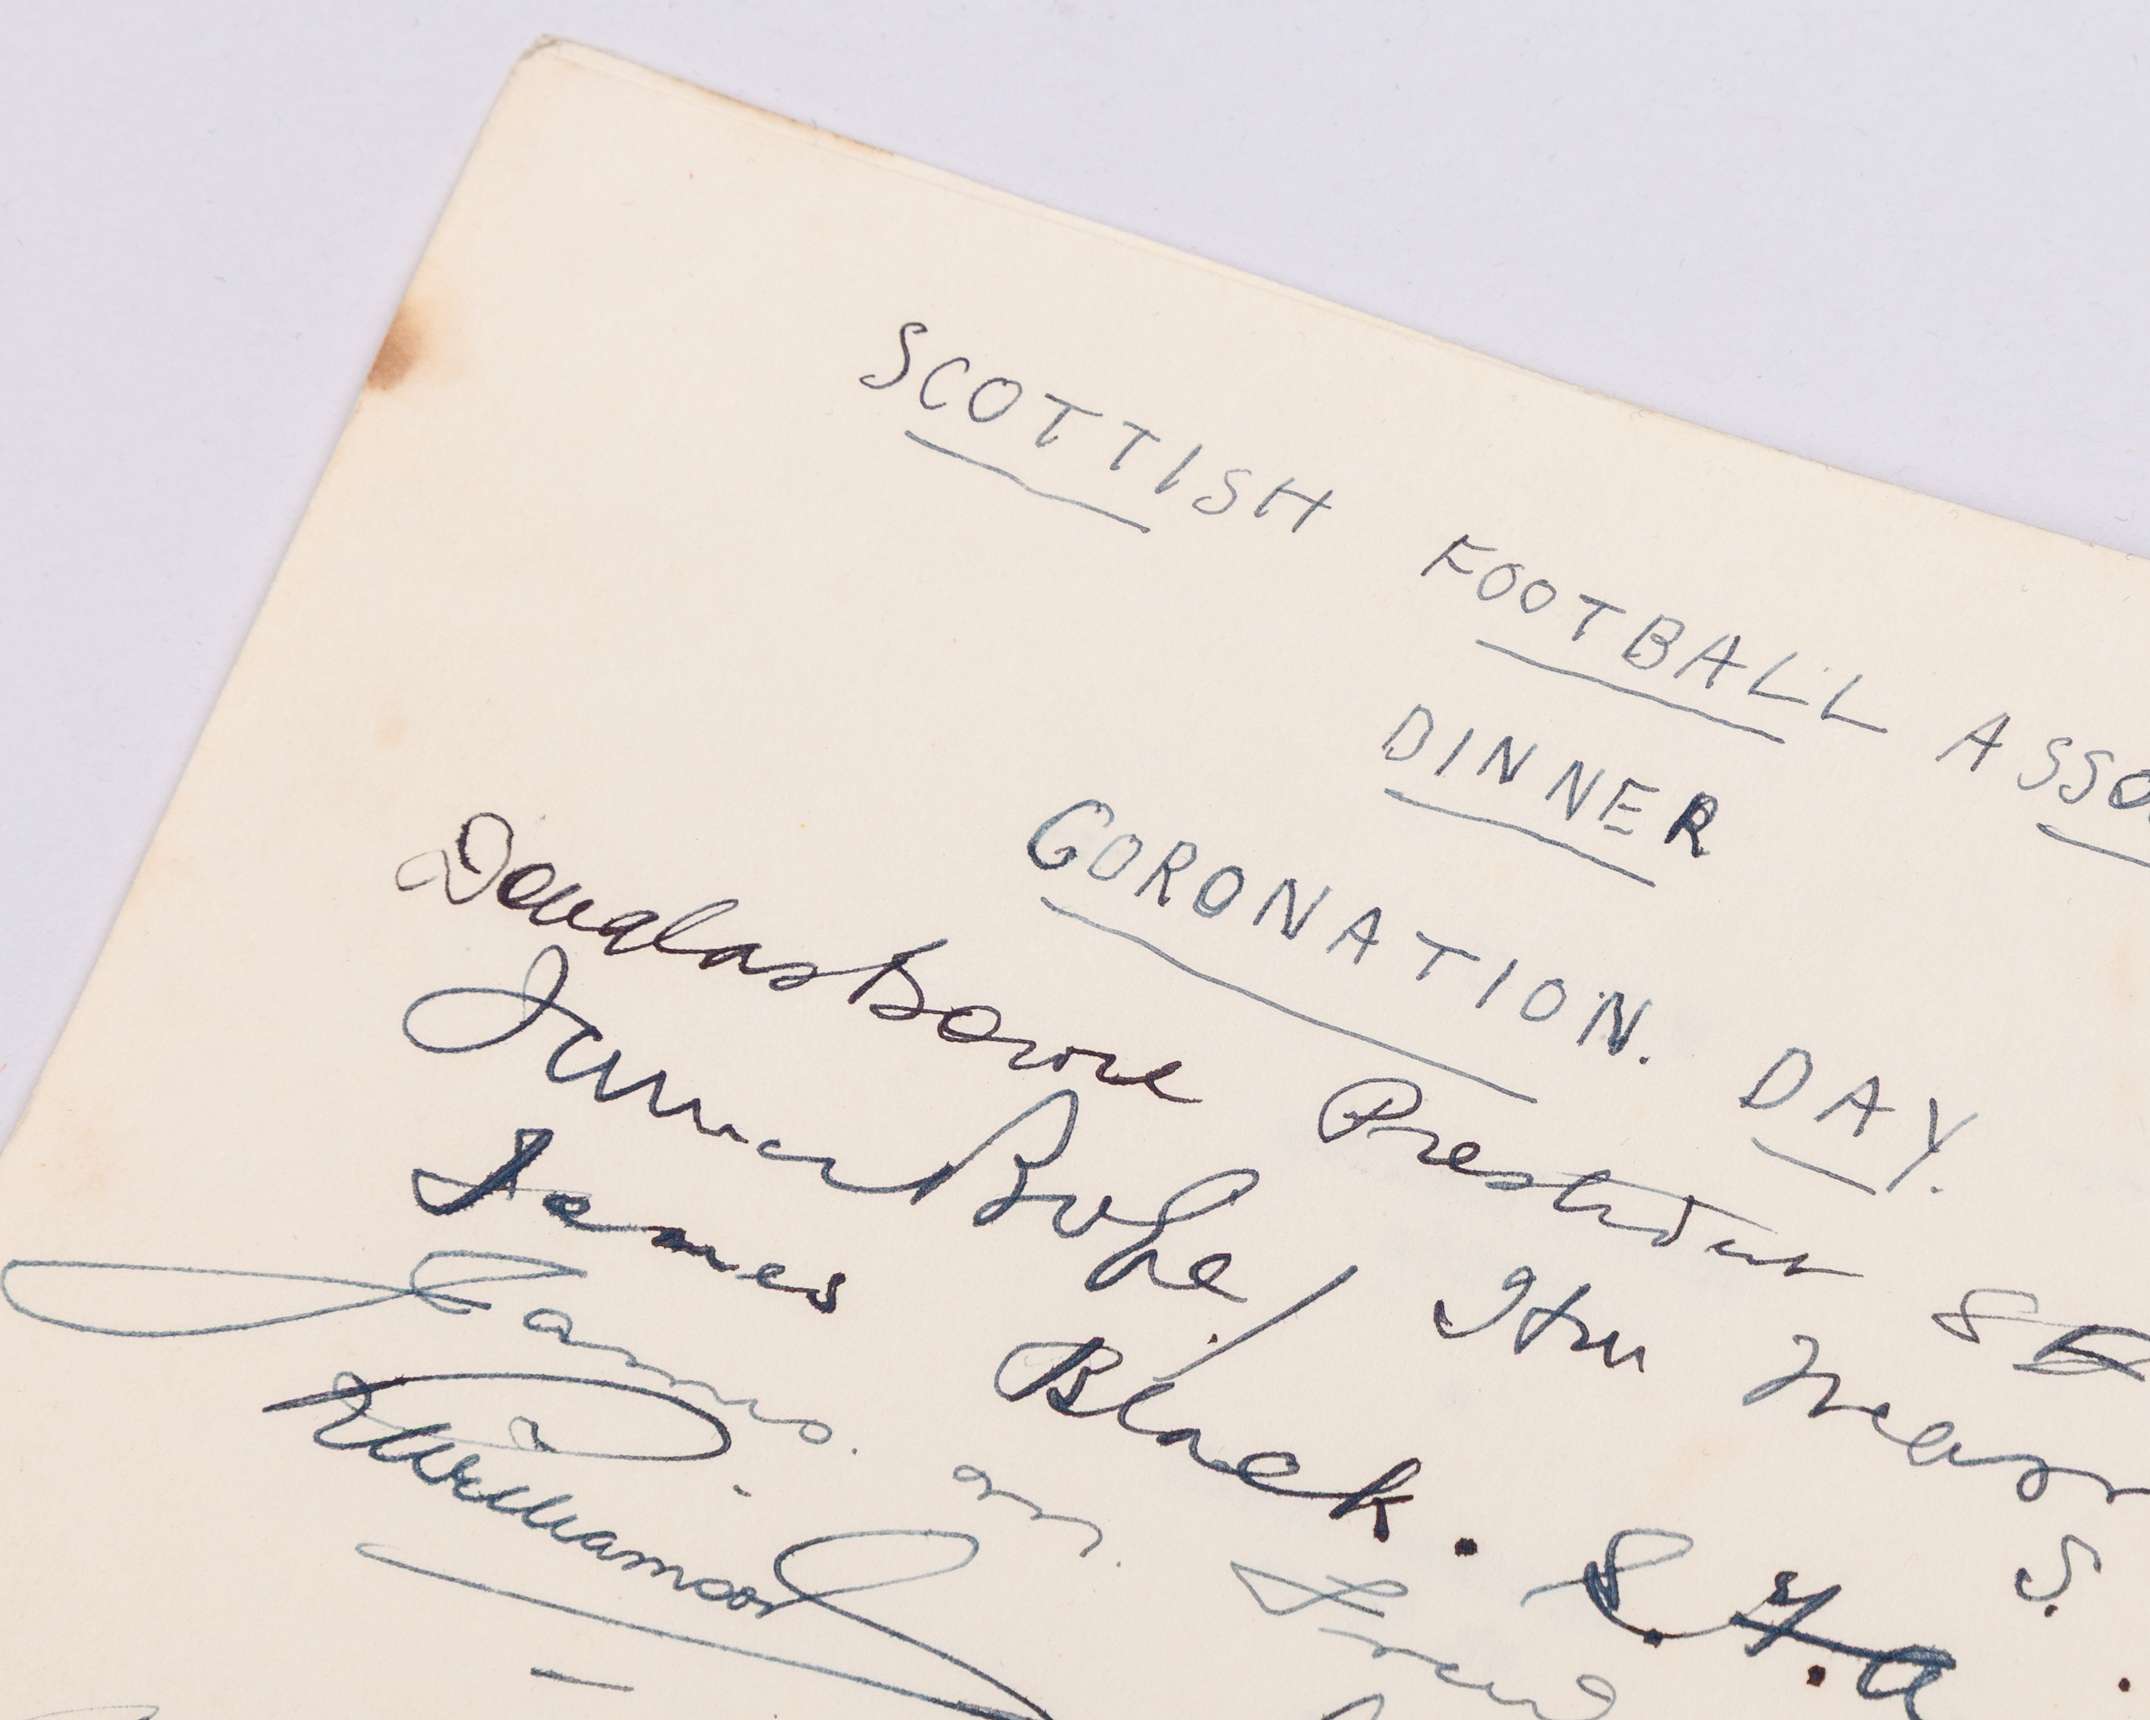 SCOTTISH FOOTBALL ASSO
DINNER
CORONATION. DAY.
Douglas Bowie President S
James Hon Treas S.
James Black. S.F.A.
James. Fred
Williamson